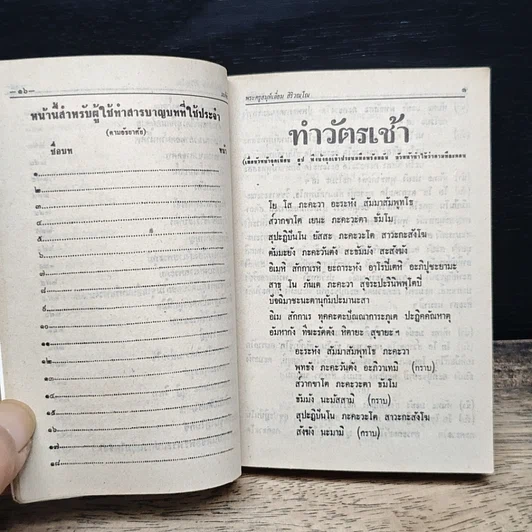 —๑๖—
หน้านี้สำหรับผู้ใช้ทำสารบาญบทที่ใช้ประจำ
(ตามอัธยาศัย)
ชื่อบท หน้า
๑
๒
๓
๔
๕
๖
๗
๘
๙
๑๐
๑๑
๑๒
๑๓
๑๔
๑๕
๑๖
๑๗
๑๘
พระครูสมุห์เอี่ยม สิริวณฺโณ ๑
ทำวัตรเช้า
โย โส ภะคะวา อะระหัง สัมมาสัมพุทโธ
ส๎วากขาโต เยนะ ภะคะวะตา ธัมโม
สุปะฏิปันโน ยัสสะ ภะคะวะโต สาวะกะสังโฆ
ตัมมะยัง ภะคะวันตัง สะธัมมัง สะสังฆัง
อิเมหิ สักกาเรหิ ยะถาระหัง อาโรปิเตหิ อะภิปูชะยามะ
สาธุ โน ภันเต ภะคะวา สุจิระปะรินิพพุโตปิ
ปัจฉิมาชะนะตานุกัมปะมานะสา
อิเม สักกาเร ทุคคะตะปัณณาการะภูเต ปะฏิคคัณหาตุ
อัมหากัง ทีฆะรัตตัง หิตายะ สุขายะ ฯ
อะระหัง สัมมาสัมพุทโธ ภะคะวา
พุทธัง ภะคะวันตัง อะภิวาเทมิ (กราบ)
ส๎วากขาโต ภะคะวะตา ธัมโม
ธัมมัง นะมัสสามิ (กราบ)
สุปะฏิปันโน ภะคะวะโต สาวะกะสังโฆ
สังฆัง นะมามิ (กราบ)